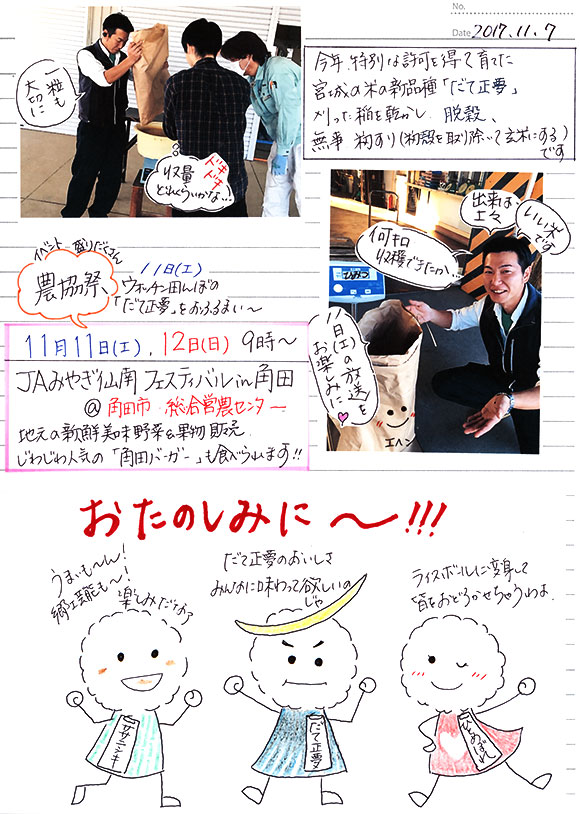 No.
Date 2017.11.7
今年、特別な許可を得て育てた
宮城の米の新品種「だて正夢」
刈った稲を乾かし、脱穀、
無事 籾すり(籾殻を取り除いて玄米にする)
です
一粒も
大切に
ドキ
ドキ
収量
どれくらいかな…
出来は
上々
いい米
です
何キロ
収穫できたかな…
ひみつ
日(土)の放送を
お楽しみに
エヘン
イベント 盛りだくさん
農協祭
11日(土)
ウォッチン田んぼの
「だて正夢」をおふるまい〜
11月11日(土)、12日(日) 9時〜
JAみやぎ仙南 フェスティバル in 角田
@ 角田市 総合営農センター
地元の新鮮美味野菜&果物 販売
じわじわ人気の「角田バーガー」も食べられます!!
おたのしみに〜!!!
うまいも〜ん!
郷土芸能も〜!
楽しみだなっ
だて正夢のおいしさ
みんなに味わって欲しいの
じゃ
ライスボールに変身して
皆をおどろかせちゃうわよ
ササニシキ
だて正夢
ひとめぼれ